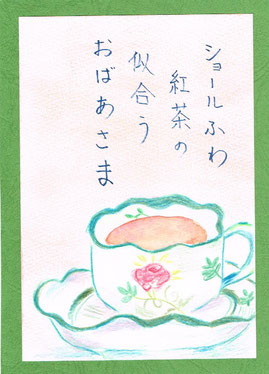 ショールふわ
紅茶の
似合う
おばあさま